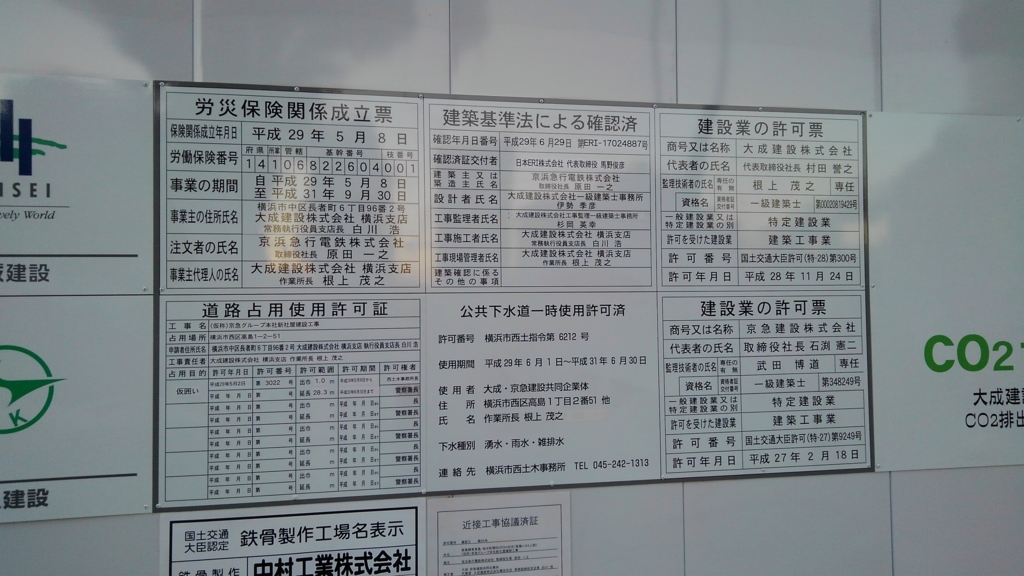 NSEI
ively World
建設
K
建設
労災保険関係成立票
保険関係成立年月日 平成 29 年 5 月 8 日
労働保険番号 府県 所掌 管轄 基幹番号 枝番号
14106822604001
事業の期間 自 平成 29 年 5 月 8 日
至 平成 31 年 9 月 30 日
事業主の住所氏名 横浜市中区長者町6丁目96番2号
大成建設株式会社 横浜支店
常務執行役員支店長 白川 浩
注文者の氏名 京浜急行電鉄株式会社
取締役社長 原田 一之
事業主代理人の氏名 大成建設株式会社 横浜支店
作業所長 根上 茂之
建築基準法による確認済
確認年月日番号 平成29年6月29日 第ERI-17024887号
確認済証交付者 日本ERI株式会社 代表取締役 馬野俊彦
建築主又は築造主氏名 京浜急行電鉄株式会社
取締役社長 原田 一之
設計者氏名 大成建設株式会社一級建築士事務所
伊勢 季彦
工事監理者氏名 大成建設株式会社工事監理一級建築士事務所
杉岡 英幸
工事施工者氏名 大成建設株式会社 横浜支店
常務執行役員支店長 白川 浩
工事現場管理者氏名 大成建設株式会社 横浜支店
作業所長 根上 茂之
建築確認に係る
その他の事項
建設業の許可票
商号又は名称 大成建設株式会社
代表者の氏名 代表取締役社長 村田 誉之
監理技術者の氏名 専任の有無 根上 茂之 専任
資格名 資格者証交付番号 一級建築士 第00020819429号
一般建設業又は特定建設業の別 特定建設業
許可を受けた建設業 建築工事業
許可番号 国土交通大臣許可(特-28)第300号
許可年月日 平成 28 年 11 月 24 日
道路占用使用許可証
工事名 (仮称)京急グループ本社新社屋建設工事
占用場所 横浜市西区高島1-2-51
申請者住所氏名 横浜市中区長者町6丁目96番2号 大成建設株式会社 横浜支店 執行役員支店長 白川 浩
工事責任者 大成建設株式会社 横浜支店 作業所長 根上 茂之
占用目的 許可年月日 許可番号 許可範囲 許可期間 許可権者
仮囲い 平成29年5月2日 第 3022 号 出巾 1.0 m 西土木事務所長
平成 年 月 日 第 号 延長 28.3 m 警察署長
公共下水道一時使用許可済
許可番号 横浜市西土指令第 6212 号
使用期間 平成 29 年 6 月 1 日~平成 31 年 6 月 30 日
使用者 大成・京急建設共同企業体
住所 横浜市西区高島1丁目2番51 他
氏名 作業所長 根上 茂之
下水種別 湧水・雨水・雑排水
連絡先 横浜市西土木事務所 TEL 045-242-1313
建設業の許可票
商号又は名称 京急建設株式会社
代表者の氏名 取締役社長 石渕 憲二
監理技術者の氏名 専任の有無 武田 博道 専任
資格名 資格者証交付番号 一級建築士 第348249号
一般建設業又は特定建設業の別 特定建設業
許可を受けた建設業 建築工事業
許可番号 国土交通大臣許可(特-27)第9249号
許可年月日 平成 27 年 2 月 18 日
CO2
大成建設
CO2排出
国土交通大臣認定 鉄骨製作工場名表示
鉄骨製作 中村工業株式会社
近接工事協議済証